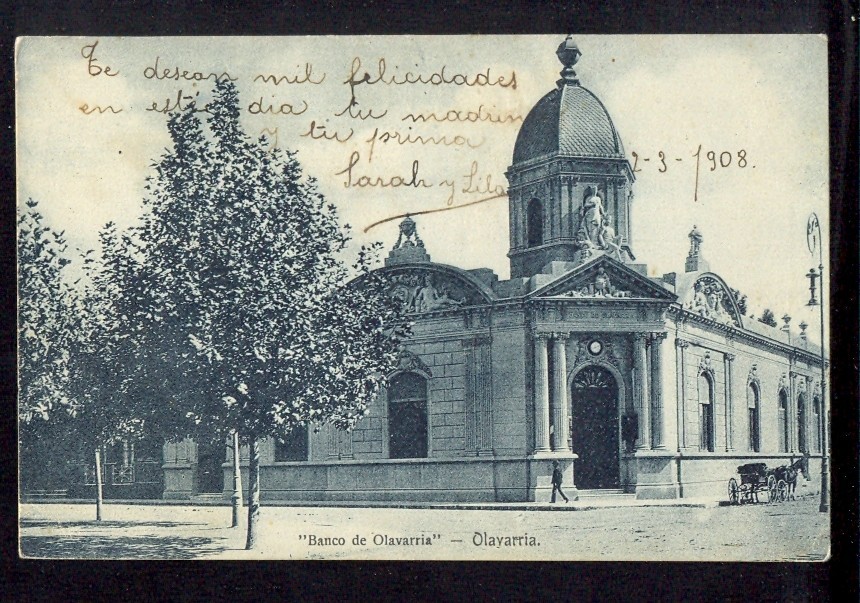 Te desean mil felicidades
en este dia tu madrin
y tu prima
Sarah y Lila
2-3-1908.
"Banco de Olavarria" — Olavarria.